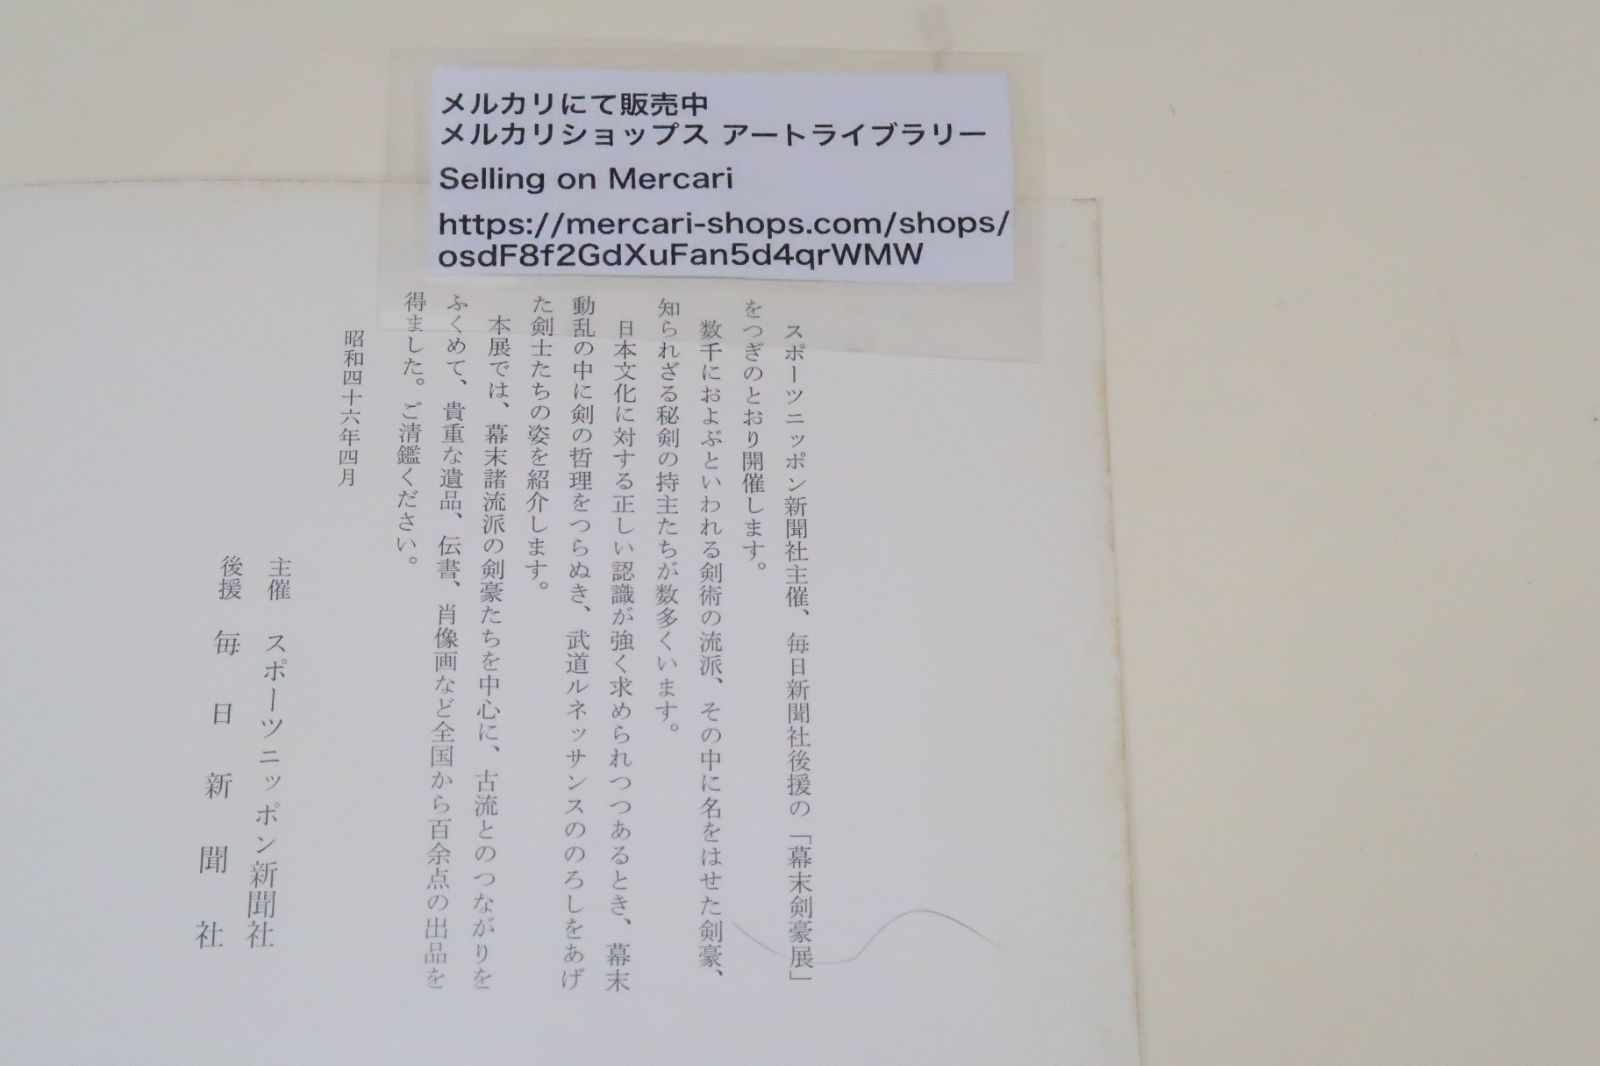 メルカリにて販売中
メルカリショップス アートライブラリー
Selling on Mercari
https://mercari-shops.com/shops/
osdF8f2GdXuFan5d4qrWMW
スポーツニッポン新聞社主催、毎日新聞社後援の「幕末剣豪展」
をつぎのとおり開催します。
数千におよぶといわれる剣術の流派、その中に名をはせた剣豪、
知られざる秘剣の持主たちが数多くいます。
日本文化に対する正しい認識が強く求められつつあるとき、幕末
動乱の中に剣の哲理をつらぬき、武道ルネッサンスののろしをあげ
た剣士たちの姿を紹介します。
本展では、幕末諸流派の剣豪たちを中心に、古流とのつながりを
ふくめて、貴重な遺品、伝書、肖像画など全国から百余点の出品を
得ました。ご清鑑ください。
昭和四十六年四月
主催 スポーツニッポン新聞社
後援 毎日新聞社